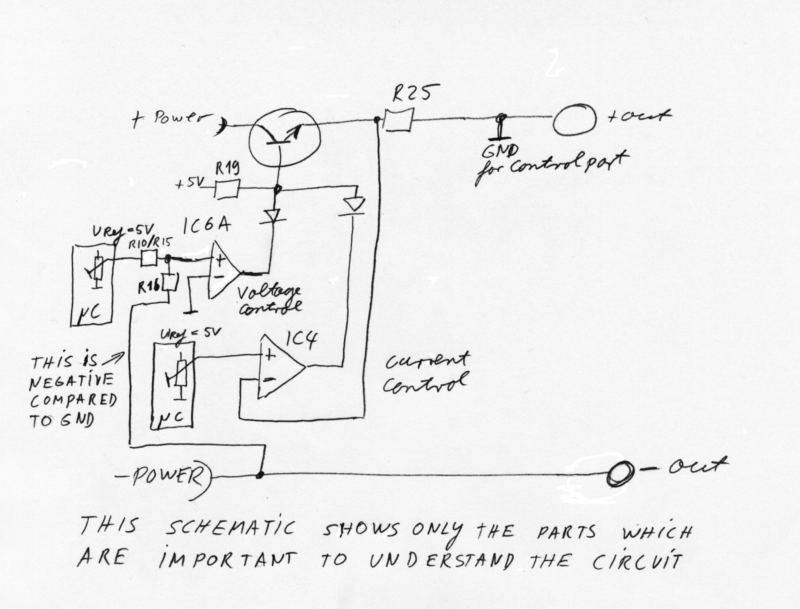 R25
+ Power
+ out
GND
for control part
R19
+5V
IC6A
URef = 5V
R10/R15
+
-
R16
Voltage
control
µC
URef = 5V
IC4
+
-
µC
THIS IS
NEGATIVE
COMPARED
TO GND
current
control
-POWER
- out
THIS SCHEMATIC SHOWS ONLY THE PARTS WHICH
ARE IMPORTANT TO UNDERSTAND THE CIRCUIT